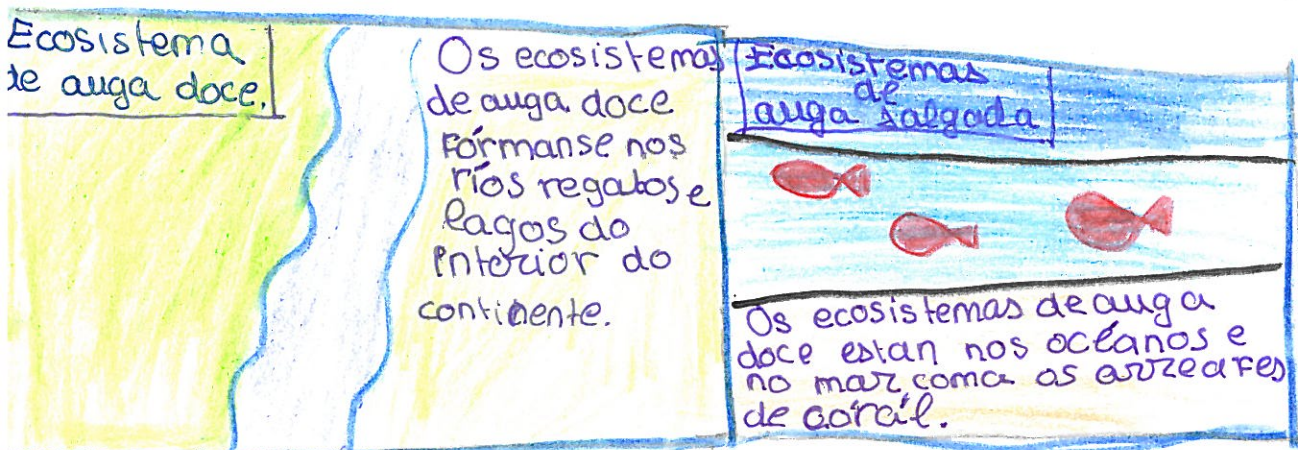 Ecosistema
de auga doce.
Os ecosistemas
de auga doce
fórmanse nos
ríos regatos e
lagos do
interior do
continente.
Ecosistemas
de
auga salgada
Os ecosistemas de auga
doce estan nos océanos e
no mar coma os arreafes
de córal.